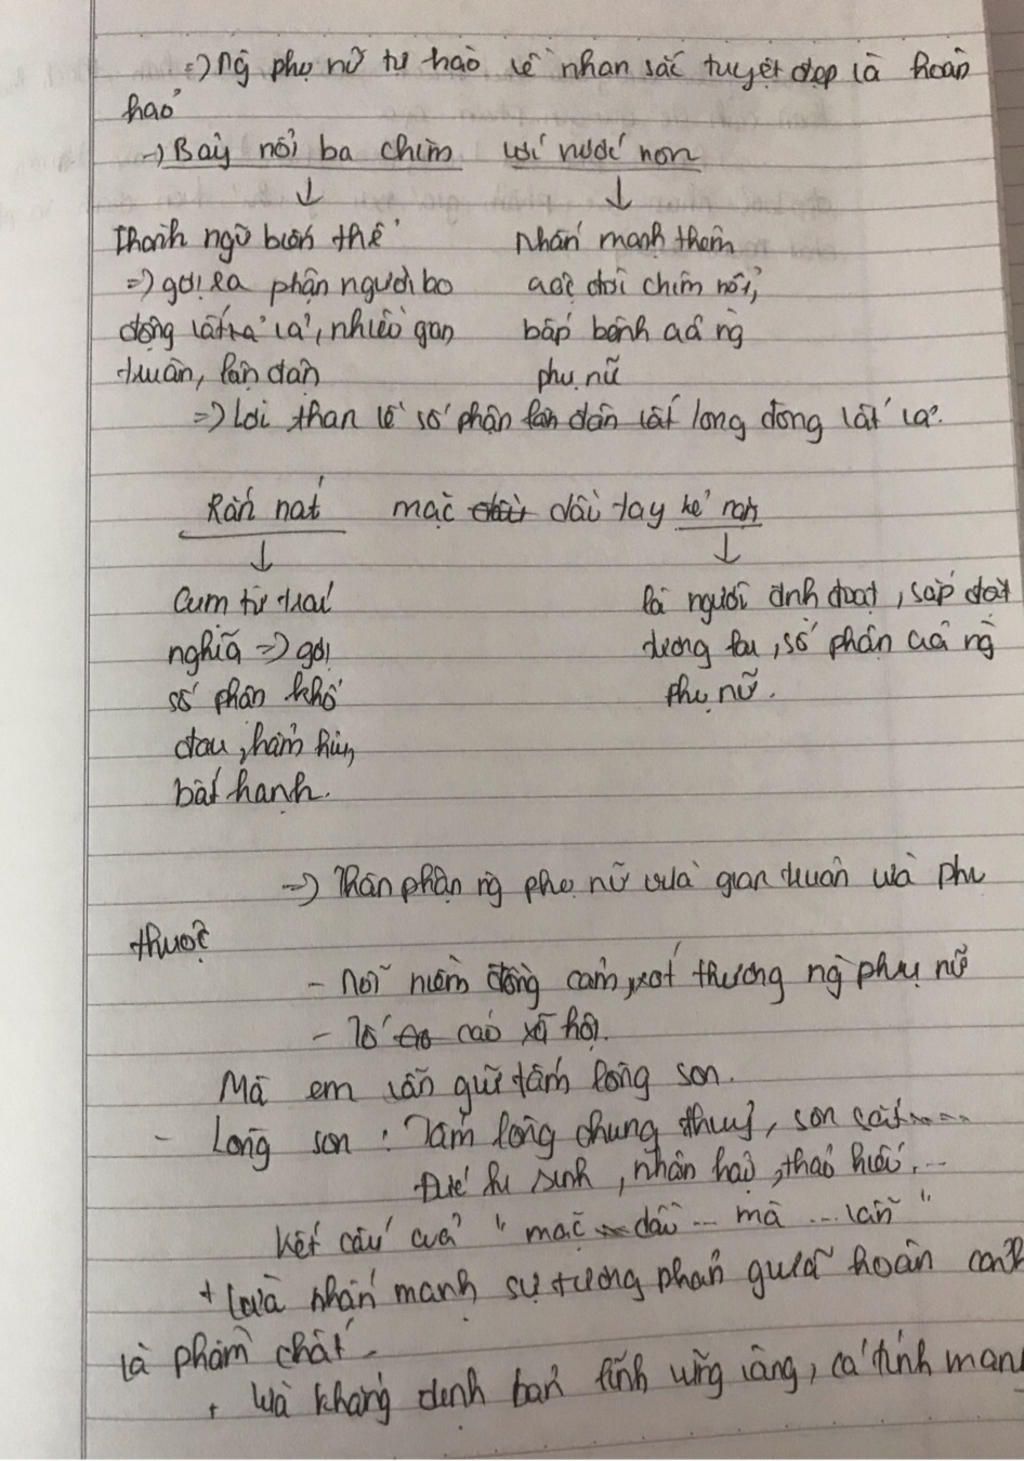 =) ng̀ phụ nữ tự hào về nhan sắc tuyệt đẹp là hoàn
hảo
-) Bảy nổi ba chìm với nước non
↓ ↓
Thành ngữ biến thể Nhấn mạnh thêm
=) gợi ra phận người bo cuộc đời chìm nổi,
động vất vả, nhiều gan bấp bênh của ng̀
truân, lận đận phụ nữ
=) Lời than về số phận lận đận vất long đong vất vả.
Rắn nát mặc dầu tay kẻ nặn
↓ ↓
Cụm từ trái là người định đoạt, sắp đặt
nghĩa =) gợi tương lai, số phận của ng̀
số phận khổ phụ nữ.
đau, hẩm hiu,
bất hạnh.
=) Thân phận ng̀ phụ nữ vừa gian truân vừa phụ
thuộc
- Nỗi niềm đồng cảm, xót thương ng̀ phụ nữ
- Tố cáo xã hội.
Mà em vẫn giữ tấm lòng son.
- Lòng son : Tấm lòng chung thuỷ, son sắt....
Đức hi sinh, nhân hậu, thảo hiếu,...
Kết cấu của " mặc dầu ... mà ... vẫn "
+ Vừa nhấn mạnh sự tương phản giữa hoàn cảnh
và phẩm chất.
+ Vừa khẳng định bản lĩnh vững vàng, cá tính mạn